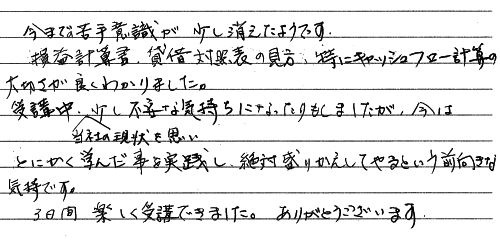 今まで苦手意識が少し消えたようです。
損益計算書、貸借対照表の見方、特にキャッシュフロー計算の
大切さが良くわかりました。
受講中、少し不安な気持ちになったりもしましたが、今は
当社の現状を思い
とにかく学んだ事を実践し、絶対盛りかえしてやるという前向きな
気持です。
3日間 楽しく受講できました。ありがとうございます。